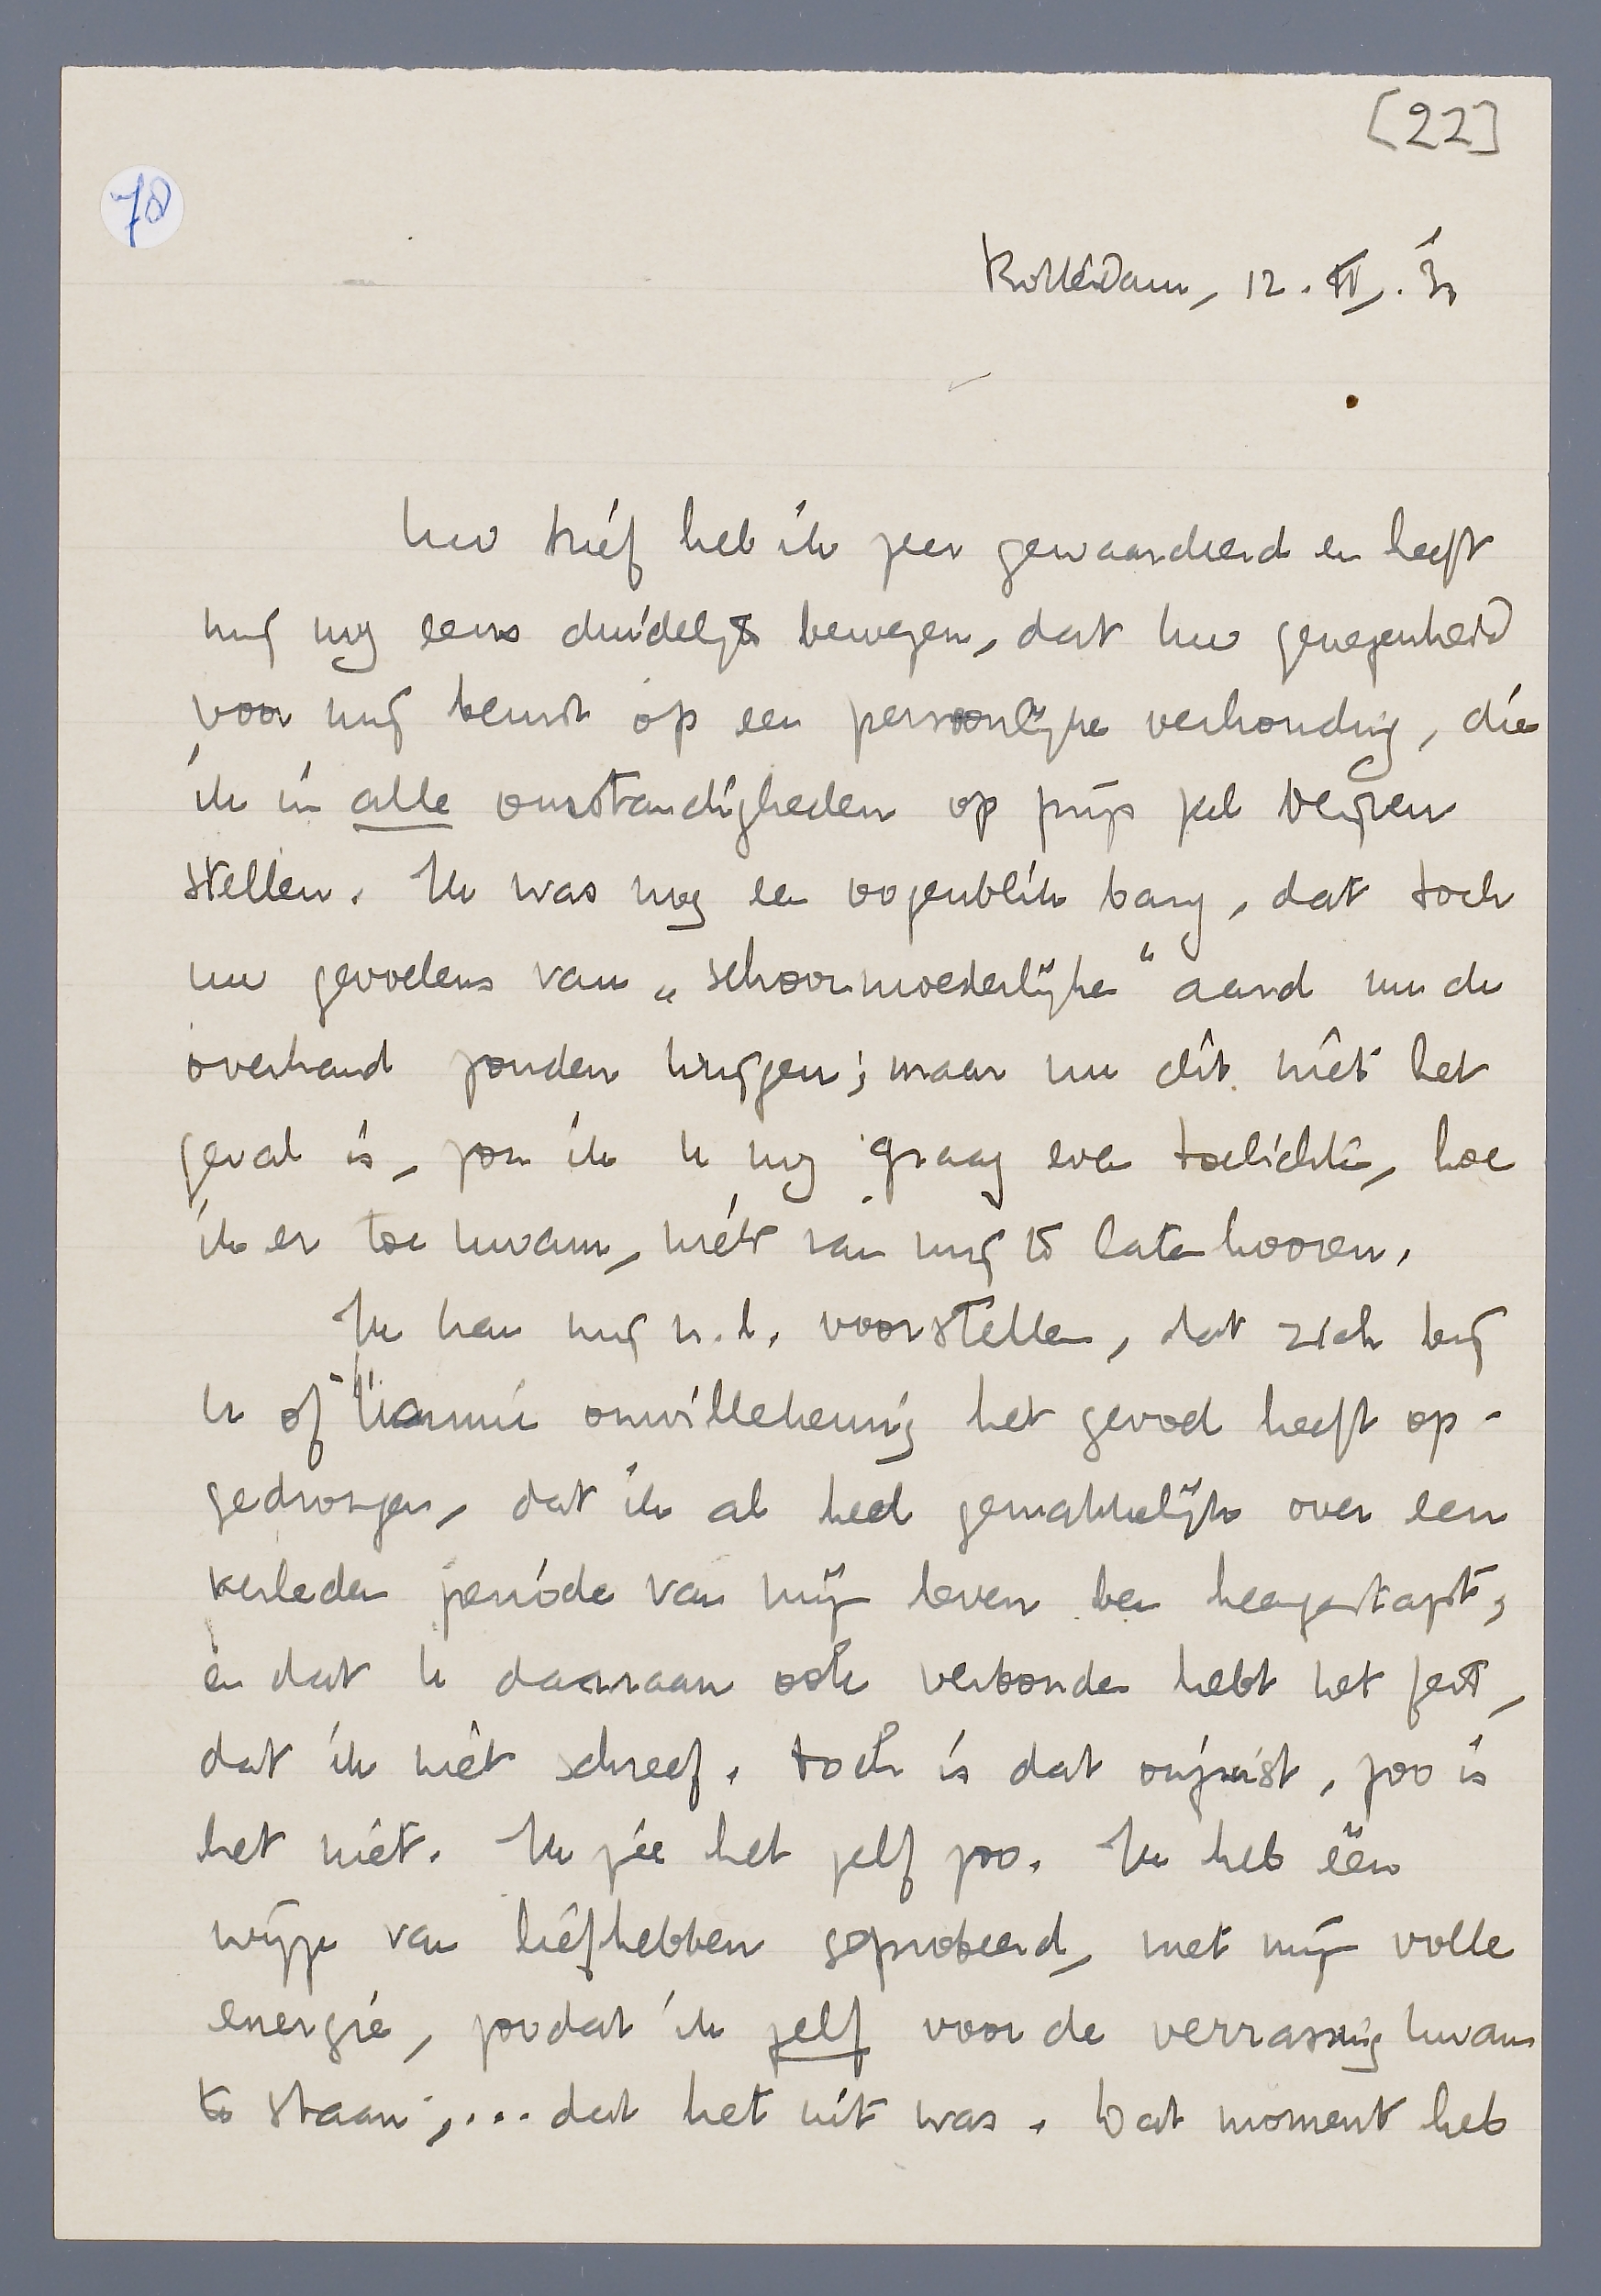 [22]
78
Rotterdam, 12. II.
Uw brief heb ik zeer gewaardeerd en heeft
mij nog eens duidelijk bewezen, dat uw genegenheid
voor mij berust op een persoonlijke verhouding, die
ik in alle omstandigheden op prijs zal blijven
stellen. Ik was nog een oogenblik bang, dat toch
uw gevoelens van „schoonmoederlijke” aard nu de
overhand zouden krijgen; maar nu dit niet het
geval is, zou ik u nog graag even toelichten, hoe
ik er toe kwam, niets van mij te laten hooren.
Ik kan mij n.l. voorstellen, dat zich bij
u of onwillekeurig het gevoel heeft op-
gedrongen, dat ik al heel gemakkelijk over een
verleden periode van mijn leven ben heengestapt,
en dat u daaraan ook verbonden hebt het feit,
dat ik niet schreef. Toch is dat onjuist, zoo is
het niet. Ik zie het zelf zoo. Ik heb één
wijze van liefhebben geprobeerd, met mijn volle
energie, zoodat ik zelf voor de verrassing kwam
te staan,... dat het uit was. Dat moment heb